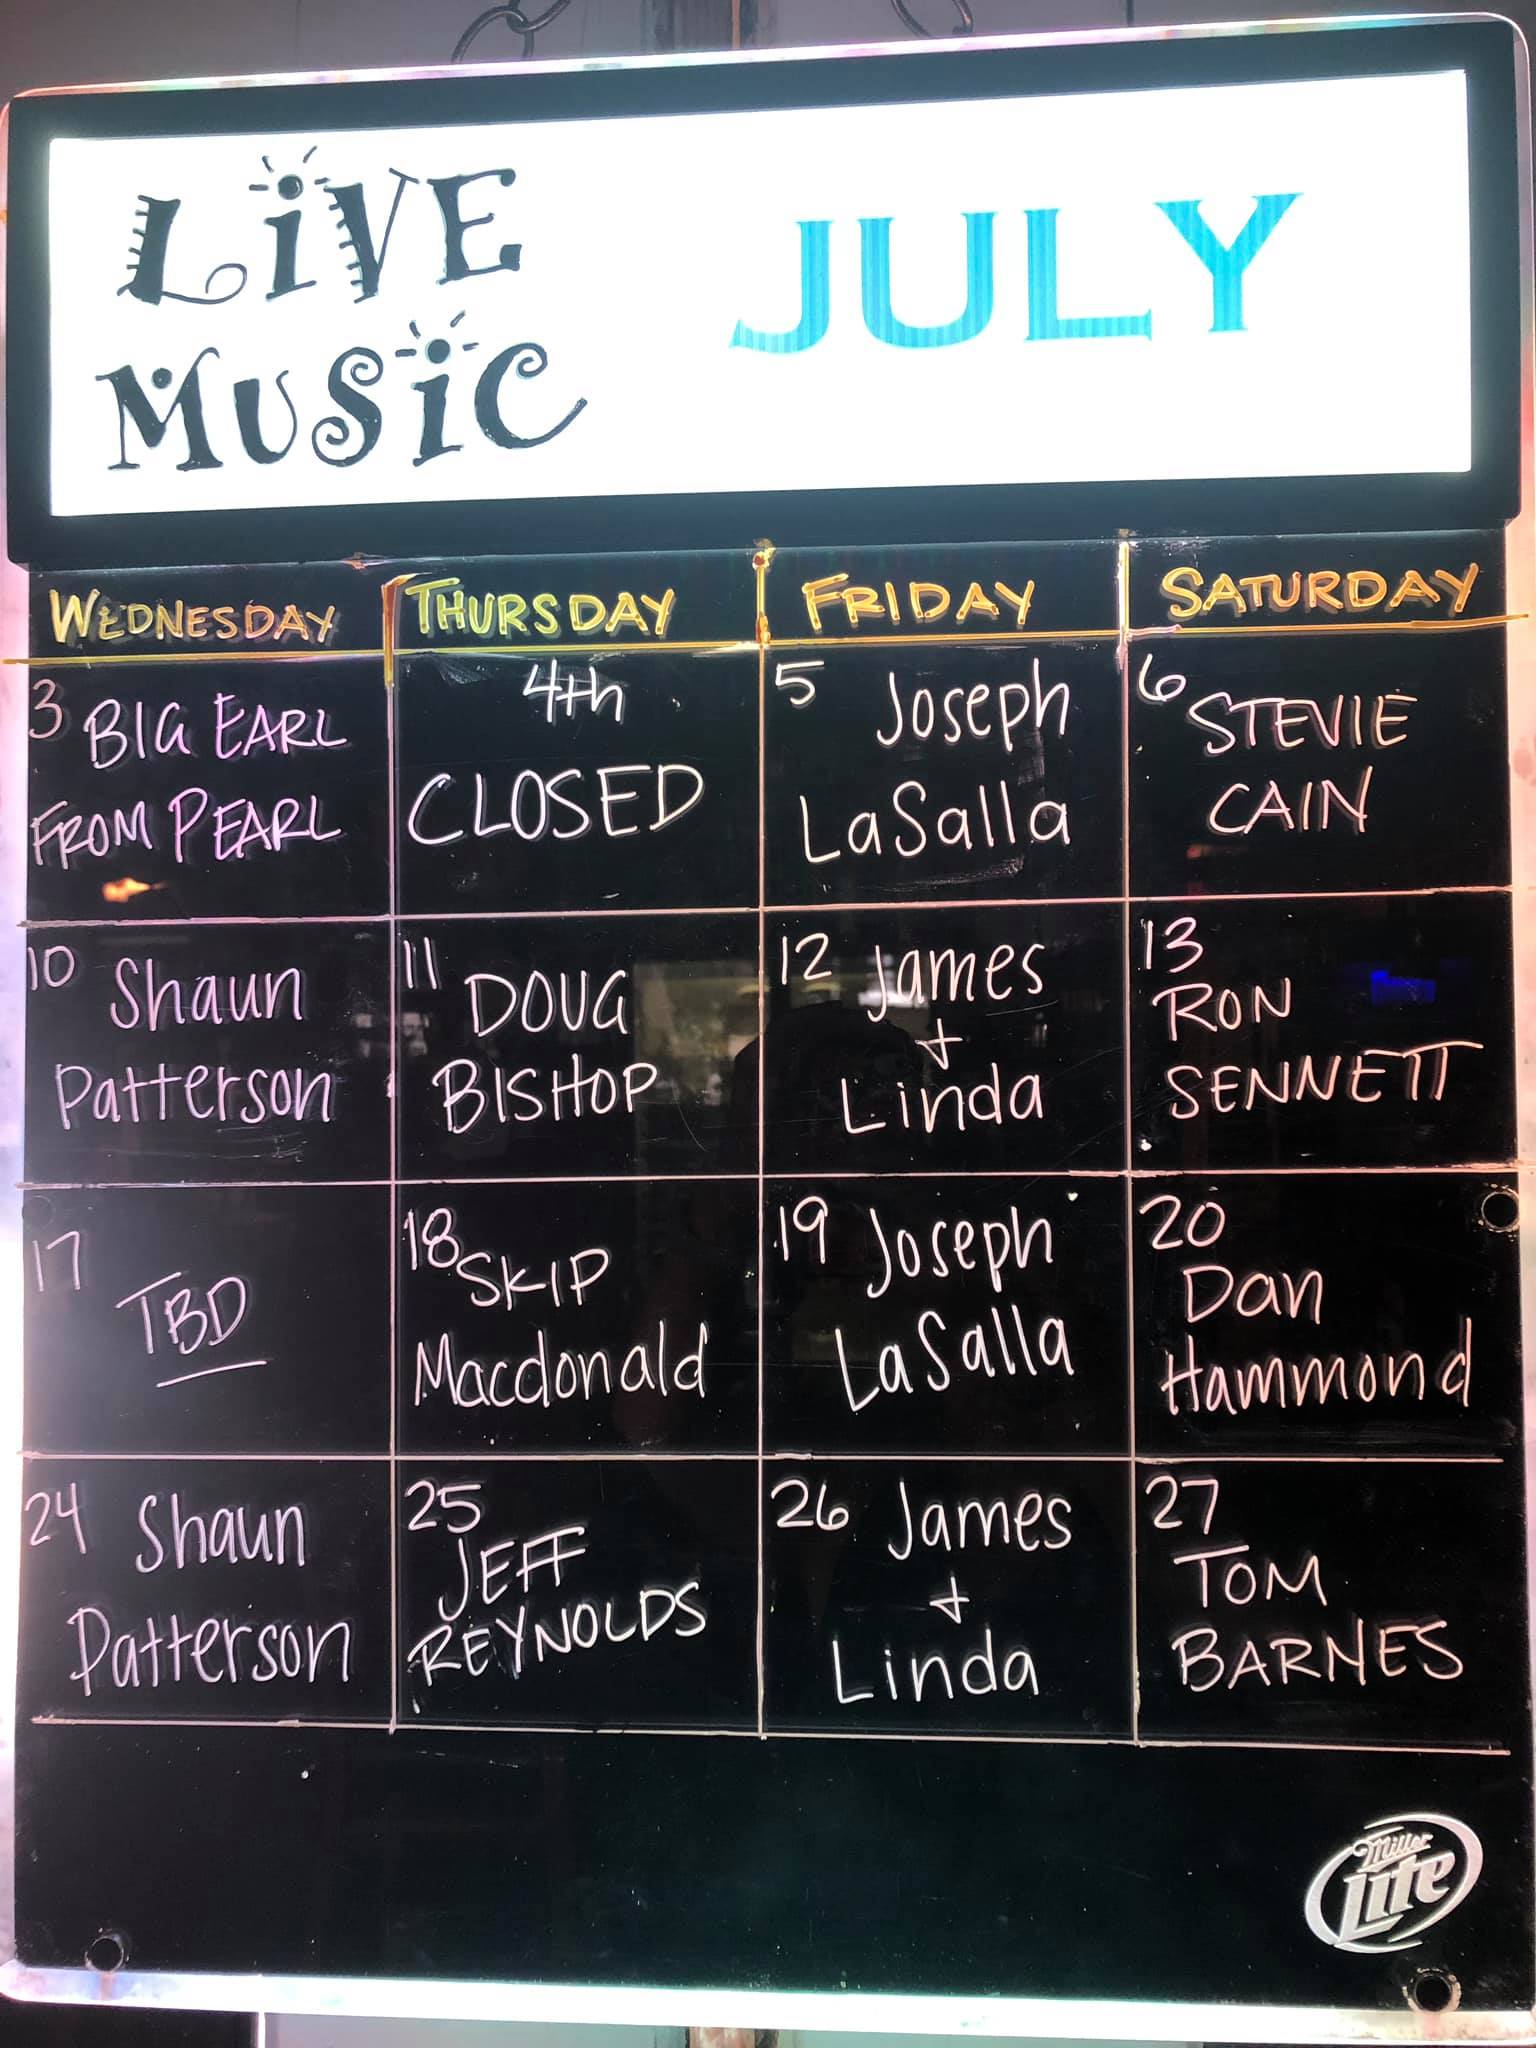 LiVE
MUSiC
JULY
WEDNESDAY THURSDAY FRIDAY SATURDAY
3 BIG EARL
FROM PEARL
4th
CLOSED
5 Joseph
LaSalla
6 STEVIE
CAIN
10 Shaun
Patterson
11 DOUG
BISHOP
12 James
+
Linda
13
RON
SENNETT
17 TBD
18 SKIP
Macdonald
19 Joseph
LaSalla
20
Dan
Hammond
24 Shaun
Patterson
25
JEFF
REYNOLDS
26 James
+
Linda
27
TOM
BARNES
Miller
Lite